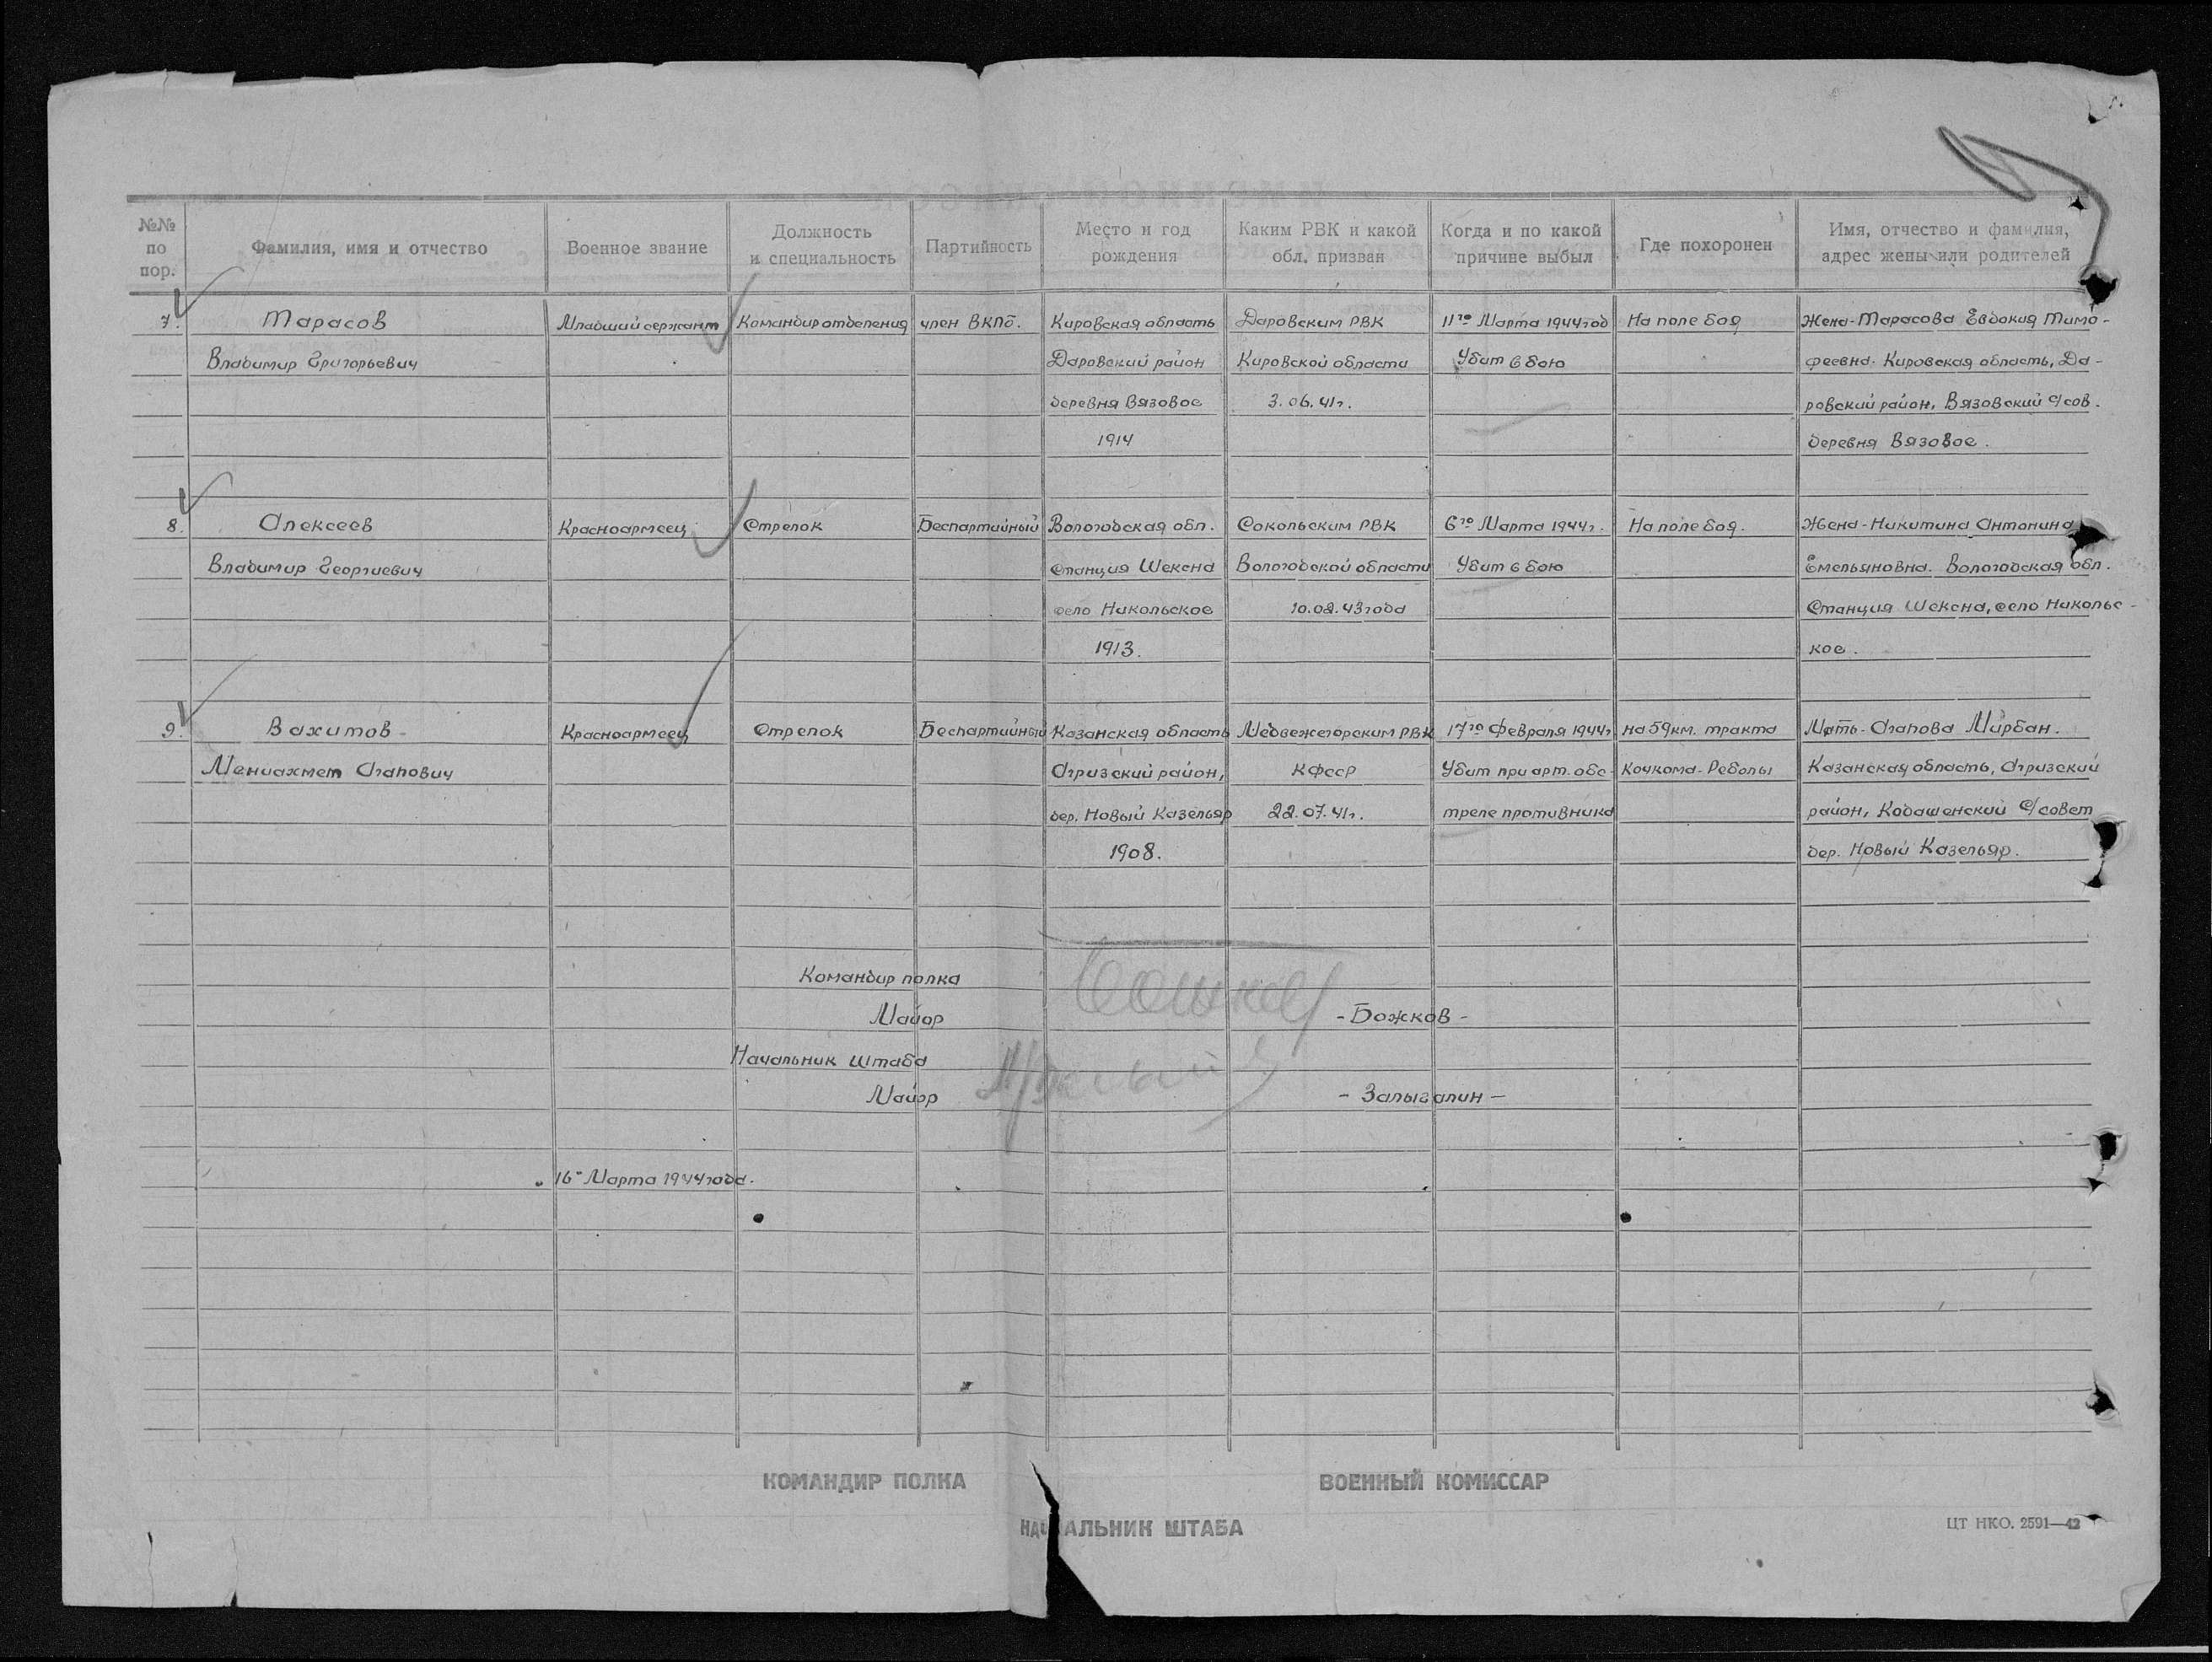 №№ по пор.
Фамилия, имя и отчество
Военное звание
Должность и специальность
Партийность
Место и год рождения
Каким РВК и какой обл. призван
Когда и по какой причине выбыл
Где похоронен
Имя, отчество и фамилия, адрес жены или родителей
7. Тарасов Младший сержант Командир отделения член ВКПб. Кировская область Даровским РВК 11го Марта 1944 год На поле боя Жена-Тарасова Евдокия Тимо-
Владимир Григорьевич Даровский район Кировской области Убит в бою феевна. Кировская область, Да-
деревня Вязовое 3.06.41г. ровский район, Вязовский с/сов.
1914 деревня Вязовое.
8. Алексеев Красноармеец Стрелок Беспартийный Вологодская обл. Сокольским РВК 6го Марта 1944г. На поле боя. Жена-Никитина Антонина
Владимир Георгиевич Станция Шексна Вологодской области Убит в бою Емельяновна. Вологодская обл.
село Никольское 10.02.43 года Станция Шексна, село Никольс-
1913. кое.
9. Вахитов Красноармеец Стрелок Беспартийный Казанская область Медвежегорским РВК 17го Февраля 1944г на 59 км. тракта Мать-Агапова Мирбан.
Мениахмет Агапович Агризский район, КФССР Убит при арт. обс- Кочкома-Реболы Казанская область, Агризский
дер. Новый Казельяр 22.07.41г. треле противника район, Кодашенский с/совет
1908. дер. Новый Казельяр.
Командир полка
Майор -Божков-
Начальник штаба
Майор -Залыгалин-
„16" Марта 1944 года.
КОМАНДИР ПОЛКА ВОЕННЫЙ КОМИССАР
НАЧАЛЬНИК ШТАБА
ЦТ НКО. 2591—42